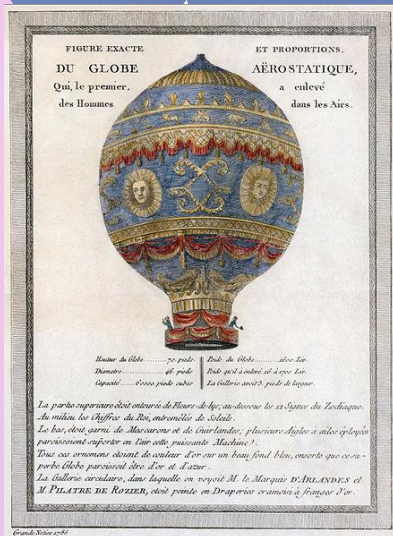 FIGURE EXACTE ET PROPORTIONS,
DU GLOBE AËROSTATIQUE,
Qui, le premier, a enlevé
des Hommes dans les Airs.
Hauteur du Globe........70 pieds.
Diametre........46 pieds
Capacité......60000 pieds cubes
Poids du Globe..........1600 Liv.
Poids qu'il a enlevé 16 à 1700 Liv.
La Gallerie avoit 3. pieds de largeur.
La partie superieure étoit entourée de Fleurs-de-lys, au-dessous les 12 Signes du Zodiaque.
Au milieu les Chiffres du Roi, entremêlés de Soleils.
Le bas, étoit garni de Mascarons et de Guirlandes; plusieurs Aigles à ailes éployées
paroissoient suporter en l'air cette puissante Machine.
Tous ces ornemens étoient de couleur d'or sur un beau fond bleu, ensorte que ce su-
perbe Globe paroissoit être d'or et d'azur.
La Gallerie circulaire, dans laquelle on voyoit M. le Marquis D'ARLANDES et
M. PILATRE DE ROZIER, etoit peinte en Draperies cramoisi à franges d'or.
Grande Notice 1786